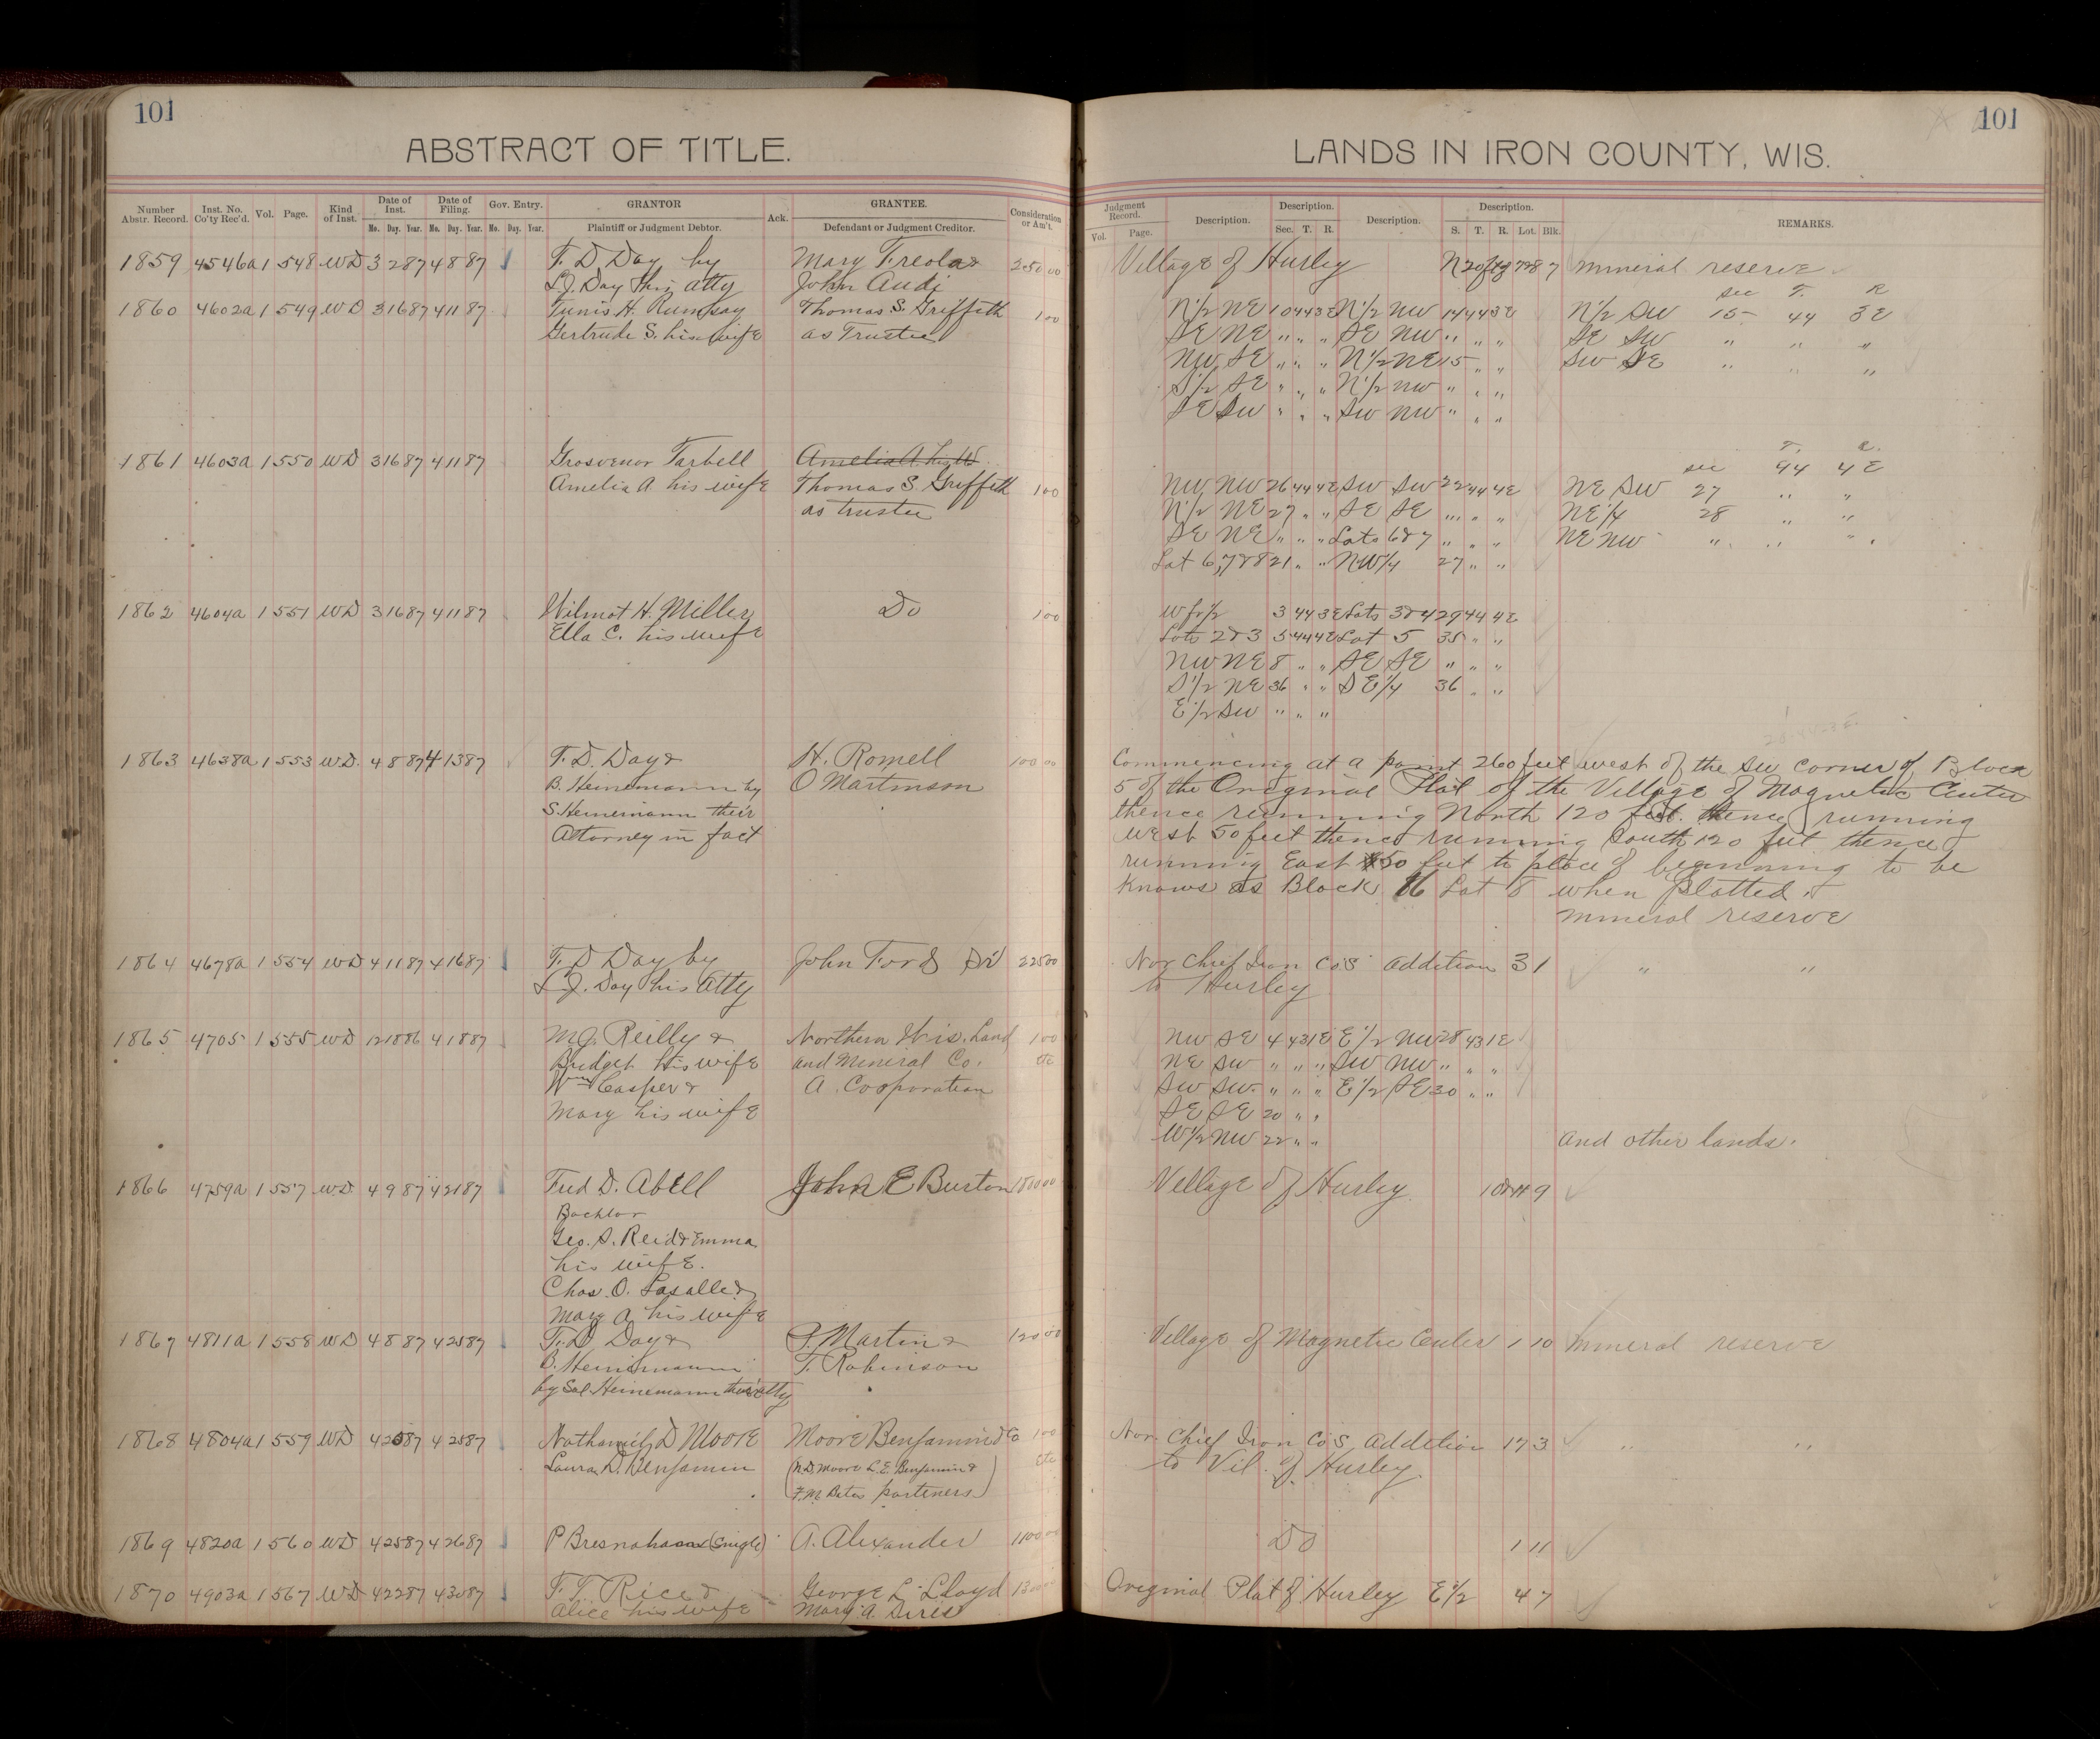 101
101
ABSTRACT OF TITLE.
LANDS IN IRON COUNTY, WIS.
Number Abstr. Record. Inst. No. Co'ty Rec'd. Vol. Page. Kind of Inst. Date of Inst. Mo. Day. Year. Date of Filing. Mo. Day. Year. Gov. Entry. Mo. Day. Year. GRANTOR Plaintiff or Judgment Debtor. Ack. GRANTEE. Defendant or Judgment Creditor. Consideration or Am't.
Judgment Record. Vol. Page. Description. Description. Sec. T. R. Description. Description. S. T. R. Lot. Blk. REMARKS.
1859 4546a 1 548 WD 3 2 87 4 8 87 T. D Day by Mary Freola & 250 00 Village of Hurley mineral reserve
L J. Day his atty John Audi
1860 4602a 1 549 WD 3 16 87 4 11 87 Tunis H. Rumsay Thomas S. Griffith 1 00 N 1/2 NE 10 44 3E N 1/2 NW 14 44 3E N 1/2 SW sec 15 T. 44 R 3E
Gertrude S. his wife as Trustee SE NE " " " SE NW " " " SE SW " " "
NW SE " " " N 1/2 NE 15 " " SW SE " " "
S 1/2 SE " " " N 1/2 NW " " "
SE SW " " " SW NW " " "
1861 4603a 1 550 WD 3 16 87 4 11 87 Grosvenor Tarbell Amelia A. his W sec T. 44 R. 4E
Amelia A his wife Thomas S. Griffith 1 00 NW NW 26 44 4E SW SW 22 44 4E NE SW 27 " "
as trustee N 1/2 NE 27 " " SE SE " " " NE 1/4 28 " "
SE NE " " " Lots 6 & 7 " " " NE NW " " "
Lot 6, 7 & 8 21 " " NW 1/4 27 " "
1862 4604a 1 551 WD 3 16 87 4 11 87 Wilmot H. Miller Do 1 00 W fr 1/2 3 44 3E Lots 3 & 4 29 44 4E
Ella C. his wife Lots 2 & 3 5 44 4E Lot 5 35 " "
NW NE 8 " " SE SE " " "
S 1/2 NE 36 " " SE 1/4 36 " "
E 1/2 SW " " "
1863 4638a 1 553 WD. 4 8 87 4 13 87 T. D. Day & H. Romell 100 00 Commencing at a point 260 feet west of the SW corner of Block
B. Heinemann by O Martinson 5 of the Original Plat of the Village of Magnetic Center
S. Heinemann their thence running North 120 feet. thence running
Attorney in fact west 50 feet thence running South 120 feet thence
running East 50 feet to place of beginning to be
known as Block 16 Lot 8 when platted.
mineral reserve
1864 4678a 1 554 WD 4 11 87 4 16 87 T. D Day by John Ford Sr 225 00 Nor Chief Iron Co's Addition 3 1 " "
L J. Day his Atty to Hurley
1865 4705 1 555 WD 12 18 86 4 18 87 M J. Reilly & Northern Wis. Land 1 00 NW SE 4 43 1E E 1/2 NW 28 43 1E
Bridget his wife and Mineral Co. etc NE SW " " " SW NW " " "
Wm Casper & A. Corporation SW SW " " " E 1/2 SE 30 " "
Mary his wife SE SE 20 " "
W 1/2 NW 22 " " and other lands.
1866 4759a 1 557 WD 4 9 87 4 21 87 Fred D. Abell John E Burton Village of Hurley
Bachlor
Geo. S. Reid & Emma
his wife.
Chas. O. Lasalle &
Mary A his wife
1867 4811a 1 558 WD 4 8 87 4 25 87 T. D Day & P. Martin & 120 00 Village of Magnetic Center 1 10 mineral reserve
B. Heinemann T. Robinson
by Sol Heinemann their atty
1868 4804a 1 559 WD 4 20 87 4 25 87 Nathaniel D Moore Moore Benjamin & Co 1 00 Nor. Chief Iron Co's Addition 17 3 " "
Laura D. Benjamin (N. D. Moore L. E. Benjamin & etc to Vil. of Hurley.
F. M. Bates partners)
1869 4820a 1 560 WD 4 25 87 4 26 87 P Bresnahan (Single) A. Alexander 1100 00 Do 1 11
1870 4903a 1 567 WD 4 22 87 4 30 87 F. T. Rice & George L. Lloyd Original Plat of Hurley E 1/2 4 7
Alice his wife Mary A. Sires